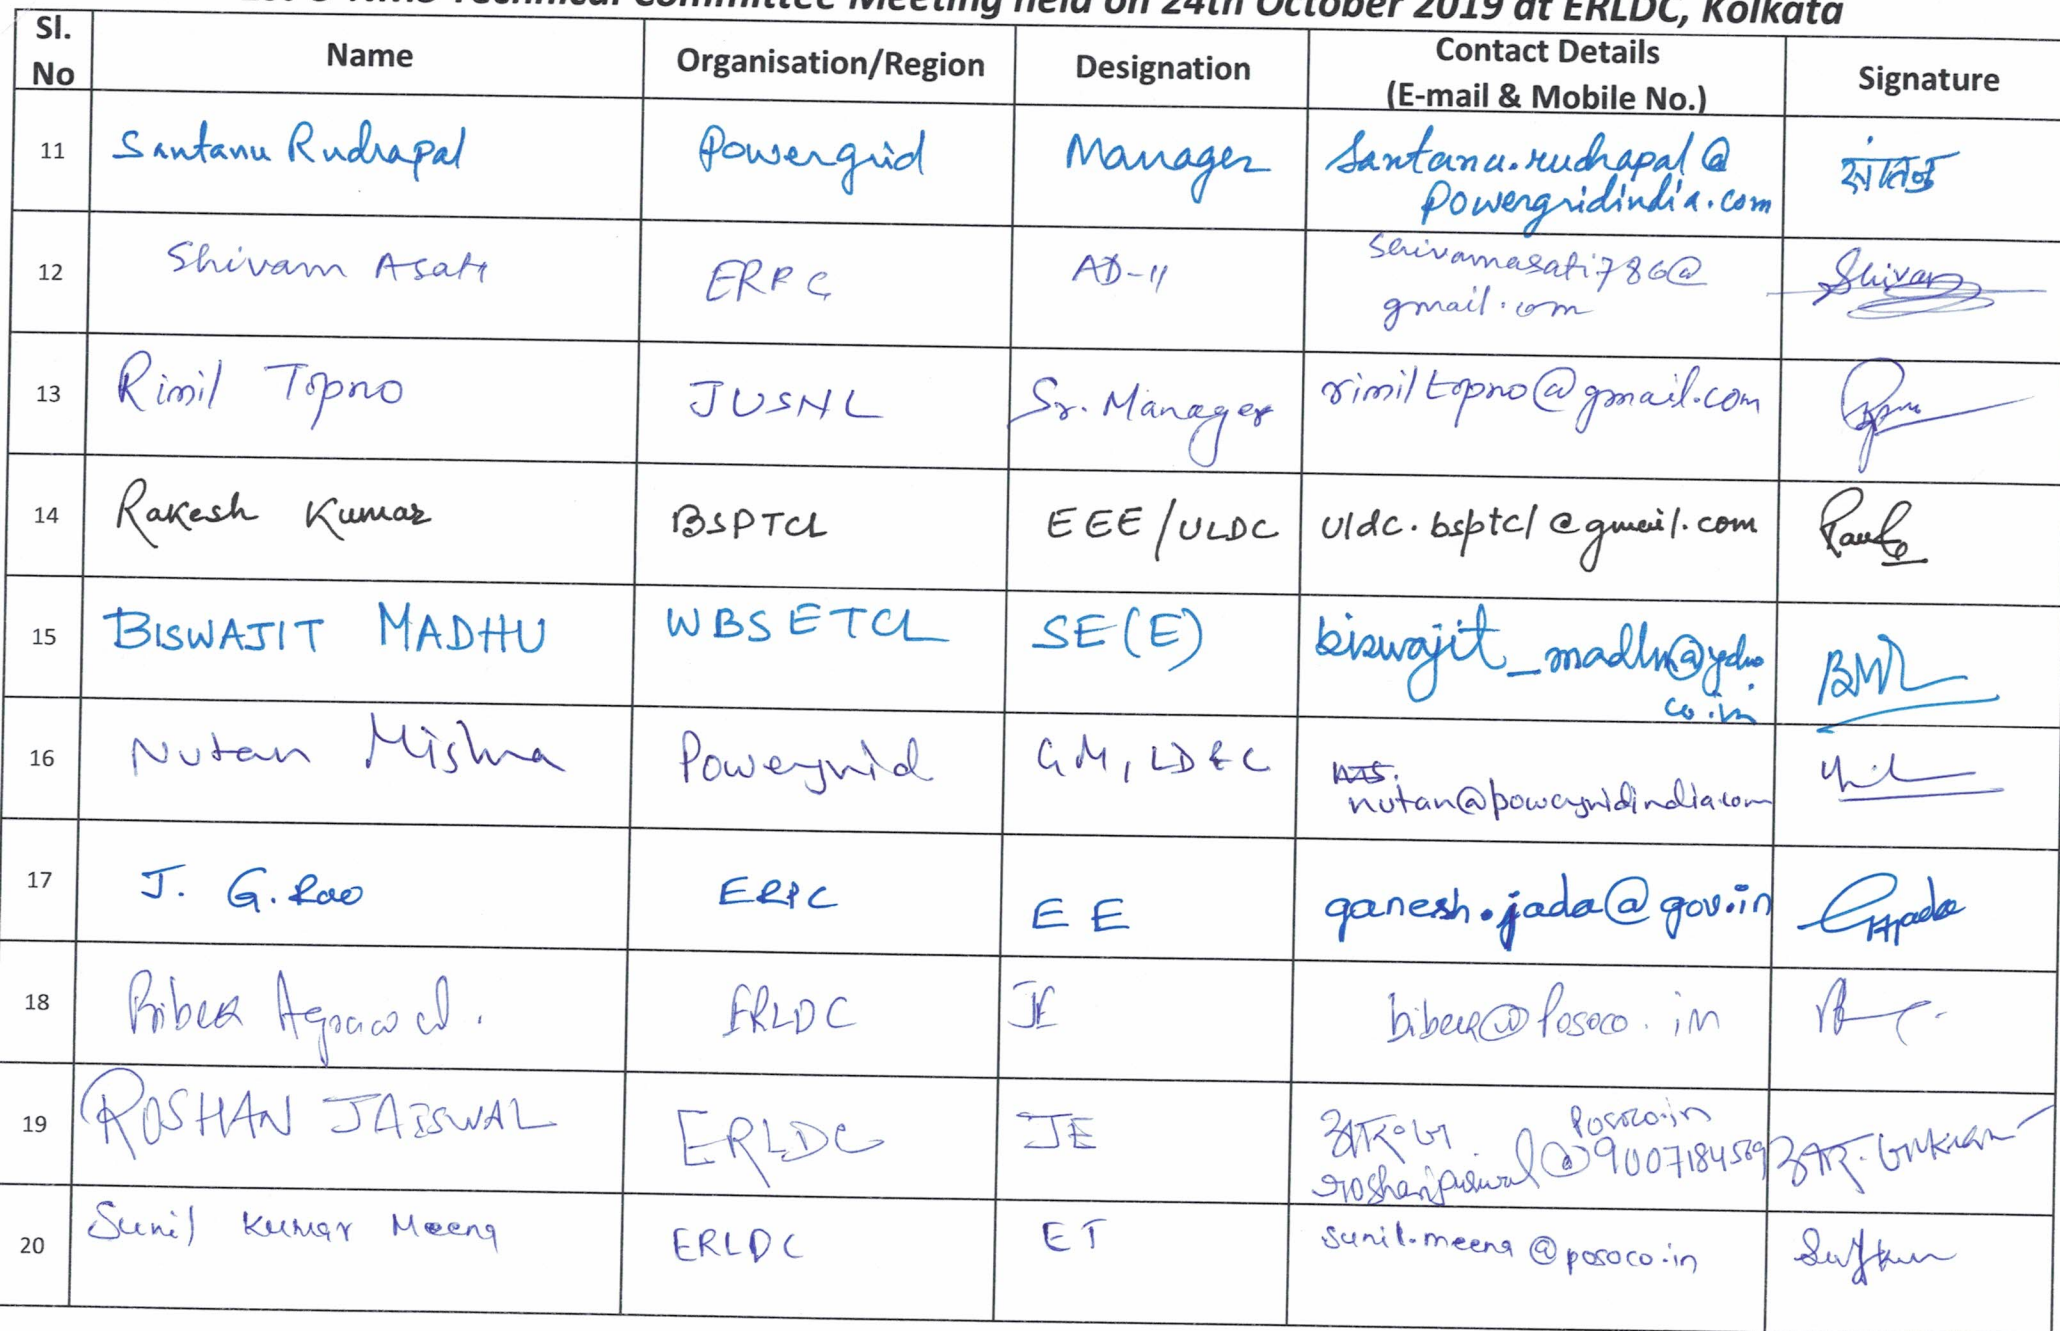 Technical Committee Meeting held on 24th October 2019 at ERLDC, Kolkata
Sl. No Name Organisation/Region Designation Contact Details (E-mail & Mobile No.) Signature
11 Santanu Rudrapal Powergrid Manager santanu.rudrapal@
powergridindia.com
12 Shivam Asati ERPC AD-II shivamasati786@ Shivam
gmail.com
13 Rimil Topno JUSNL Sr. Manager rimiltopno@gmail.com
14 Rakesh Kumar BSPTCL EEE/ULDC uldc.bsptcl@gmail.com
15 BISWAJIT MADHU WBSETCL SE(E) biswajit_madhu@yahoo.
co.in
16 Nutan Mishra Powergrid GM, LD&C
nutan@powergridindia.com
17 J. G. Rao ERPC EE ganesh.jada@gov.in
18 Bibek Agrawal. ERLDC JE bibek@posoco.in
19 ROSHAN JAISWAL ERLDC JE posoco.in
roshanjaiswal@ 9007184569
20 Sunil Kumar Meena ERLDC ET sunil.meena@posoco.in